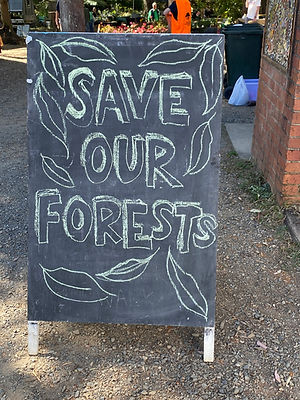 SAVE
OUR
FORESTS